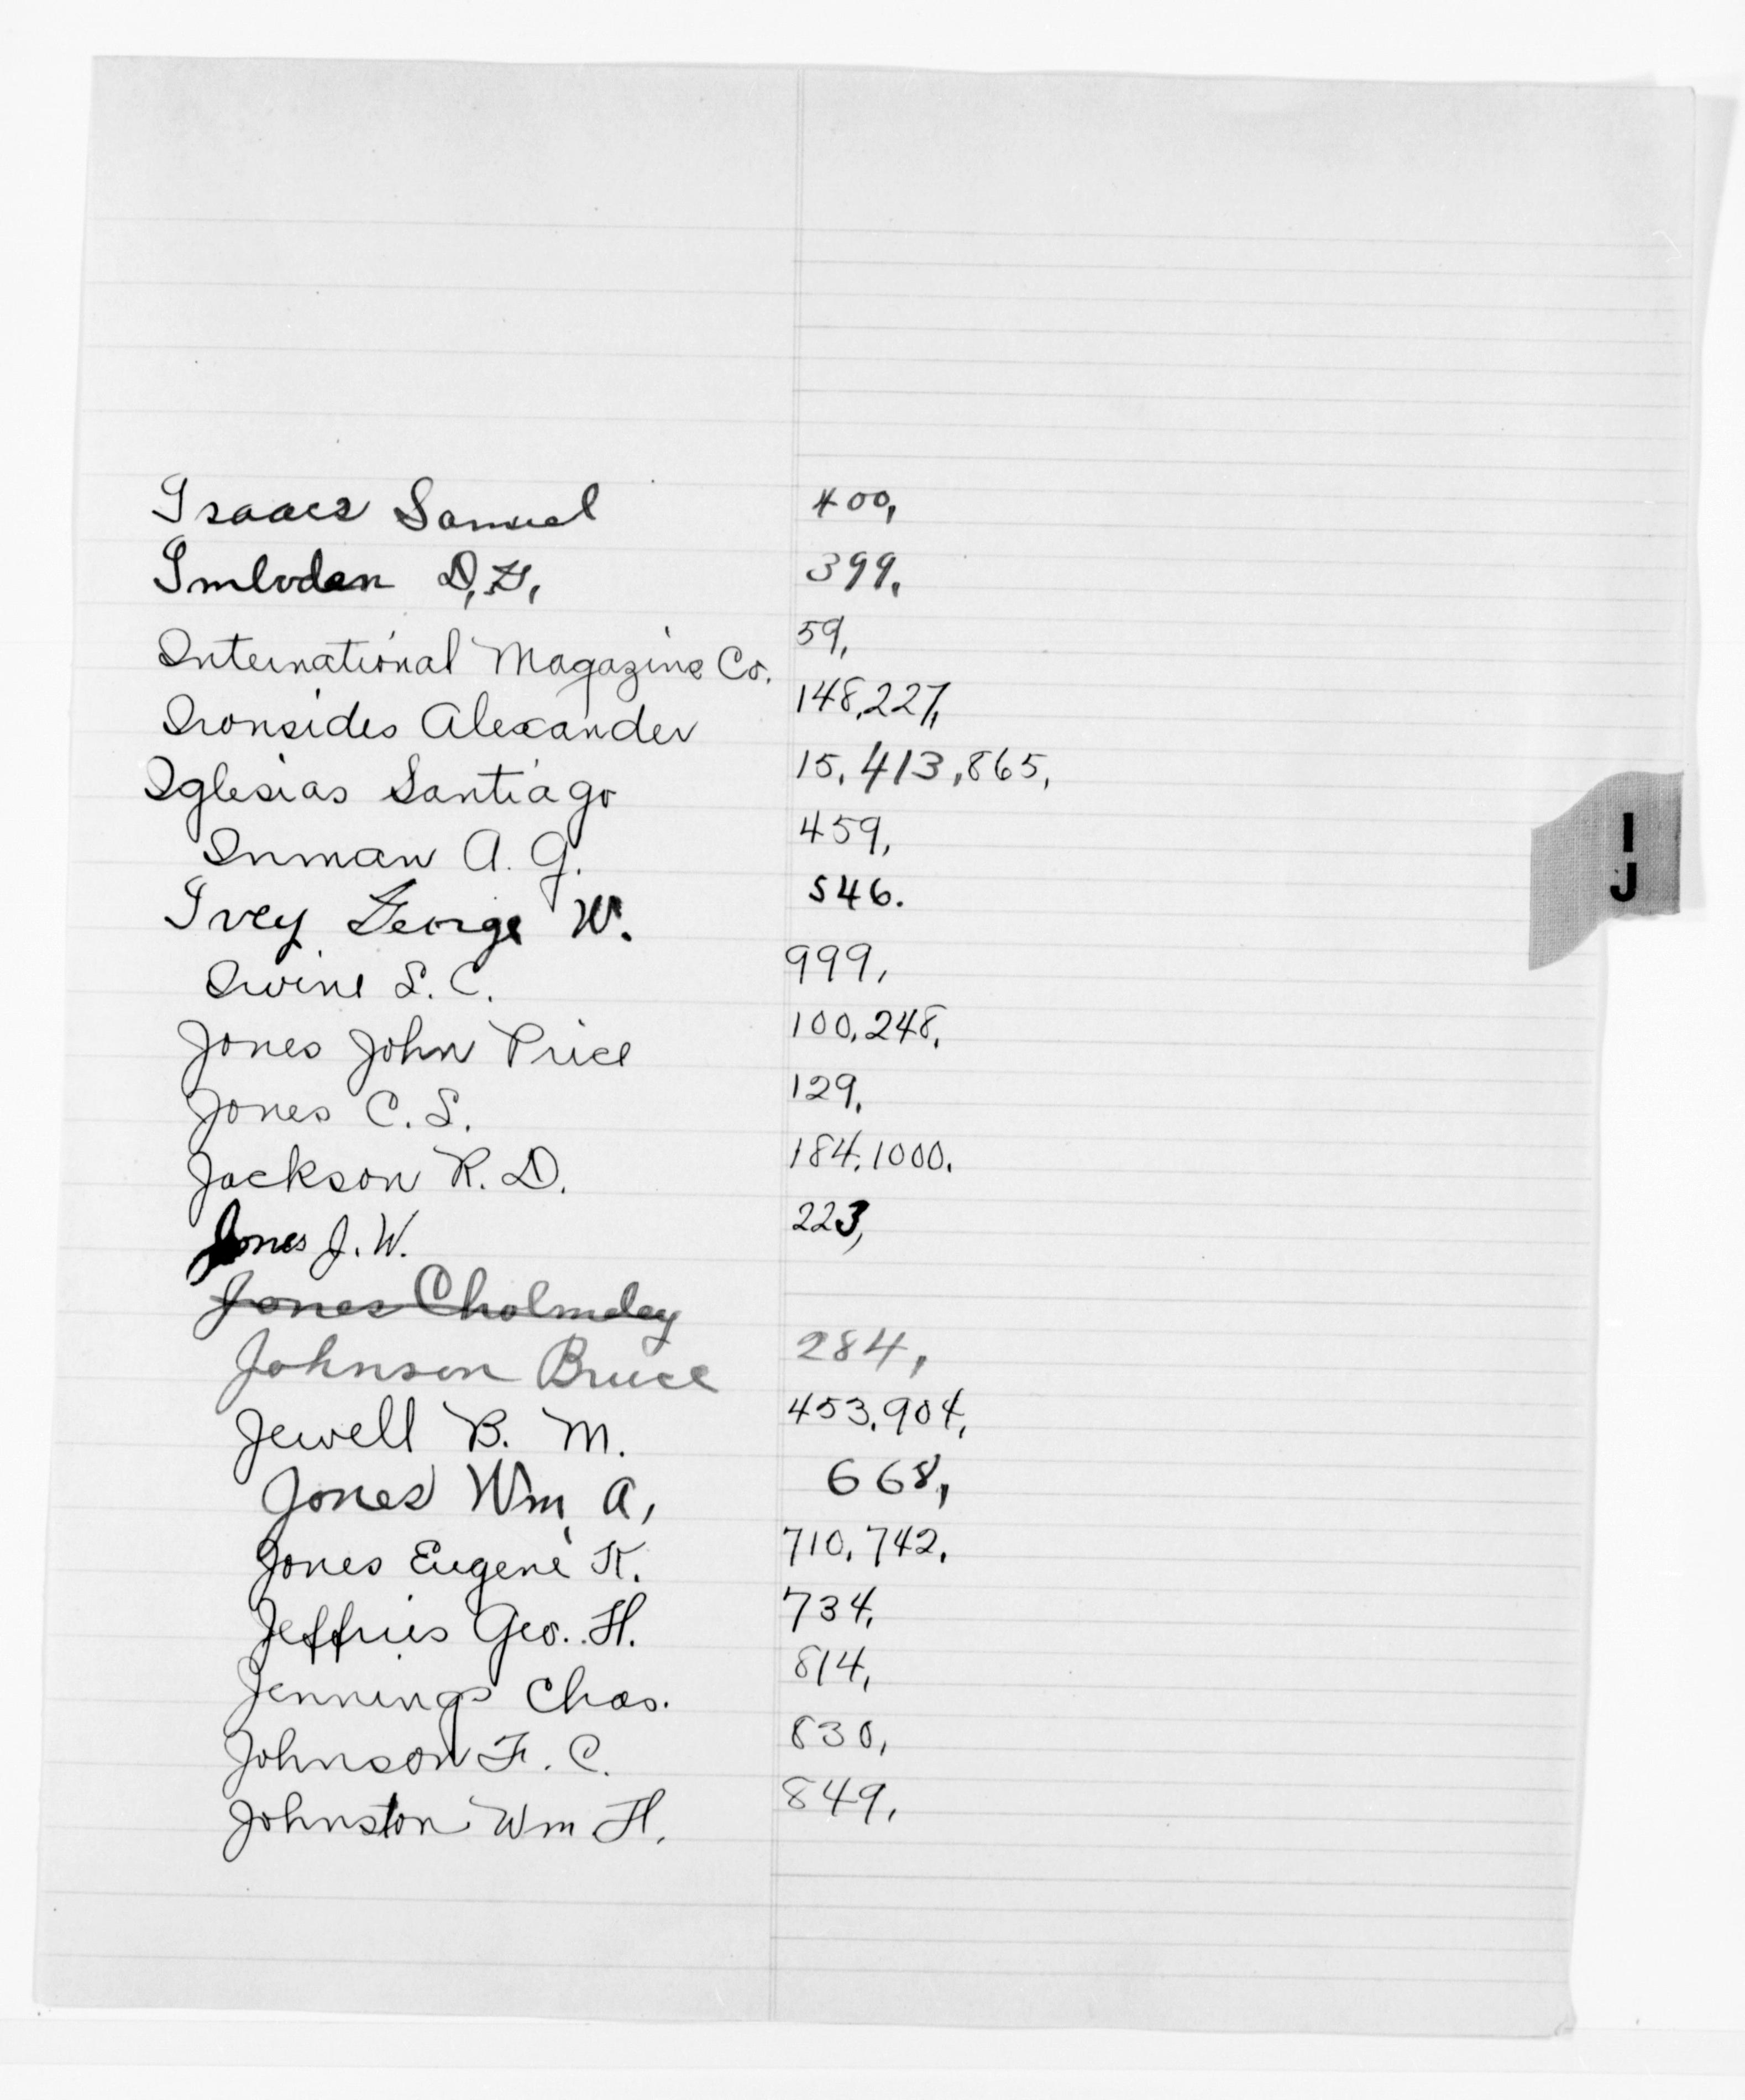 Isaacs Samuel 400,
Imboden D, G, 399,
International Magazine Co. 59,
Ironsides Alexander 148,227,
Iglesias Santiago 15, 413, 865,
Inman A. G. 459,
Ivey George W. 546.
Irvine S. C. 999,
Jones John Price 100, 248,
Jones C. S. 129,
Jackson R. D. 184, 1000.
Jones J. W. 223,
Jones Cholmdey
Johnson Bruce 284,
Jewell B. M. 453, 904,
Jones Wm A, 668,
Jones Eugene K. 710, 742,
Jeffries Geo. H. 734,
Jennings Chas. 814,
Johnson F. C. 830,
Johnston Wm H. 849,
I
J